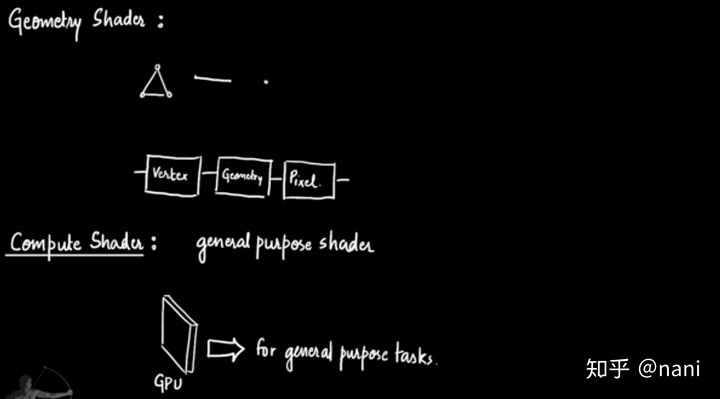 Geometry Shader :
Vertex Geometry Pixel.
Compute Shader : general purpose shader
for general purpose tasks.
GPU
知乎 @nani